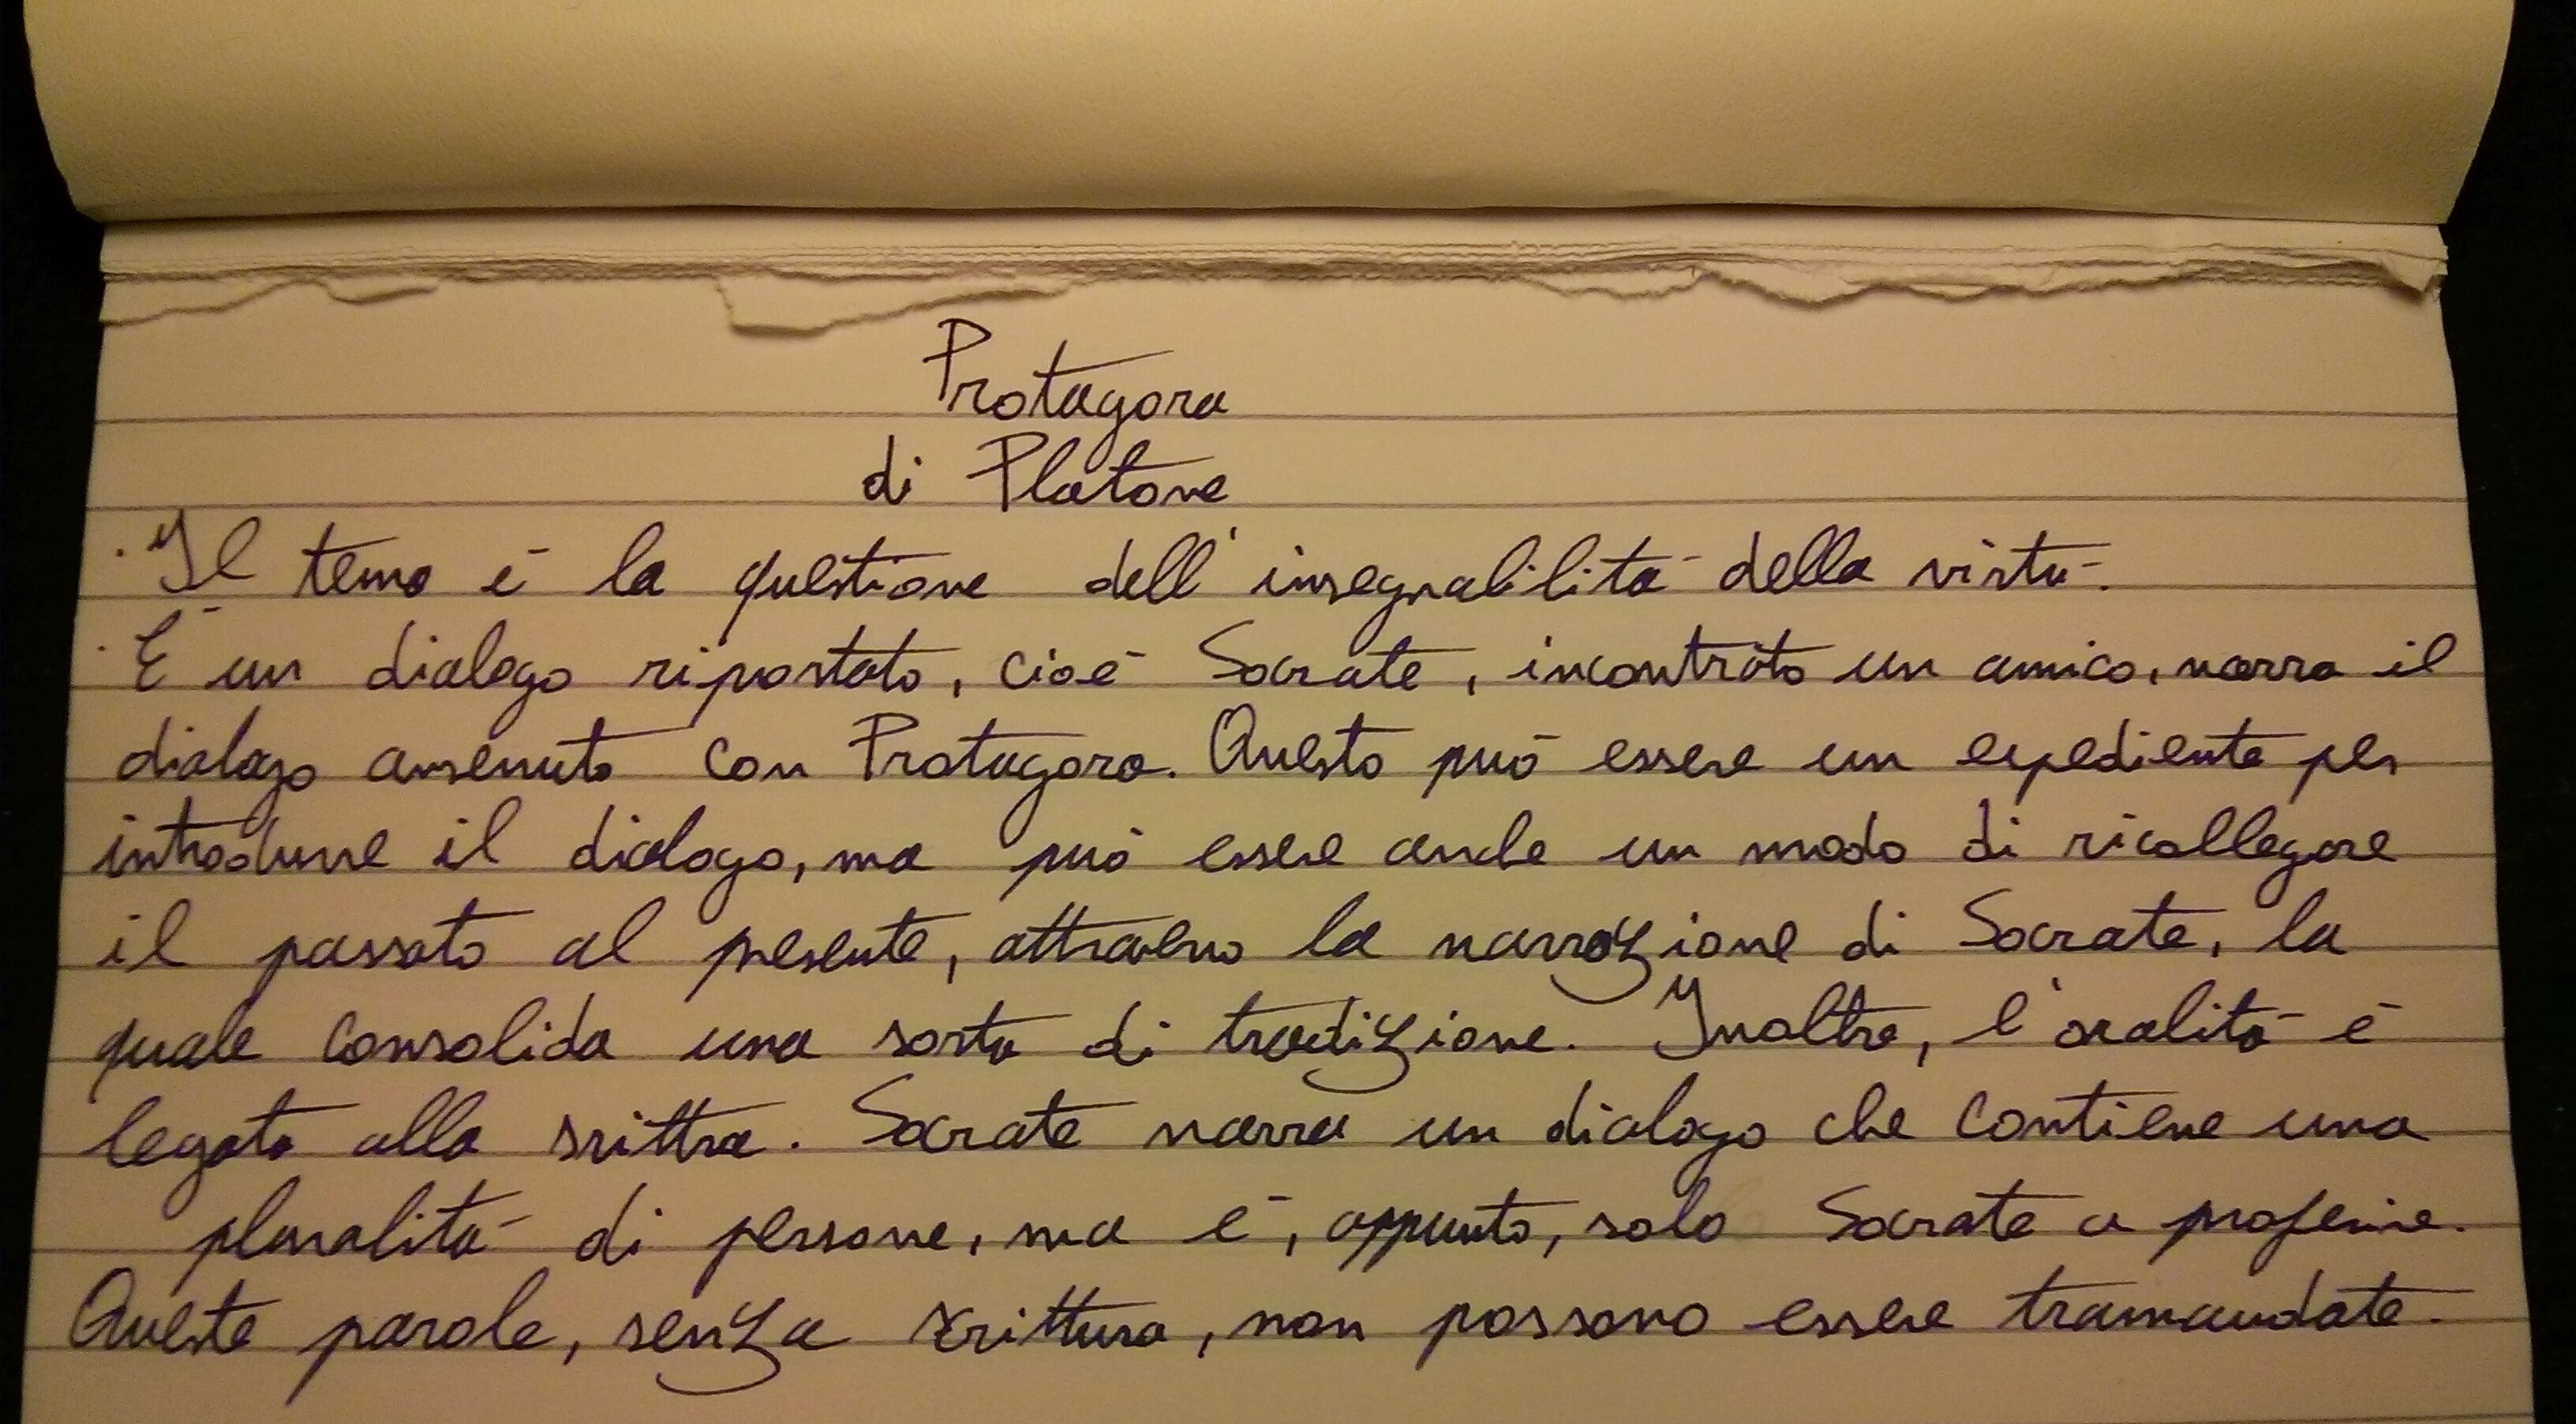 Protagora
di Platone
· Il tema è la questione dell'insegnabilità della virtù.
· È un dialogo riportato, cioè Socrate, incontrato un amico, narra il
dialogo avvenuto con Protagora. Questo può essere un espediente per
introdurre il dialogo, ma può essere anche un modo di ricollegare
il passato al presente, attraverso la narrazione di Socrate, la
quale consolida una sorta di tradizione. Inoltre, l'oralità è
legata alla srittra. Socrate narra un dialogo che contiene una
pluralità di persone, ma è, appunto, solo Socrate a proferire.
Queste parole, senza scrittura, non possono essere tramandate.